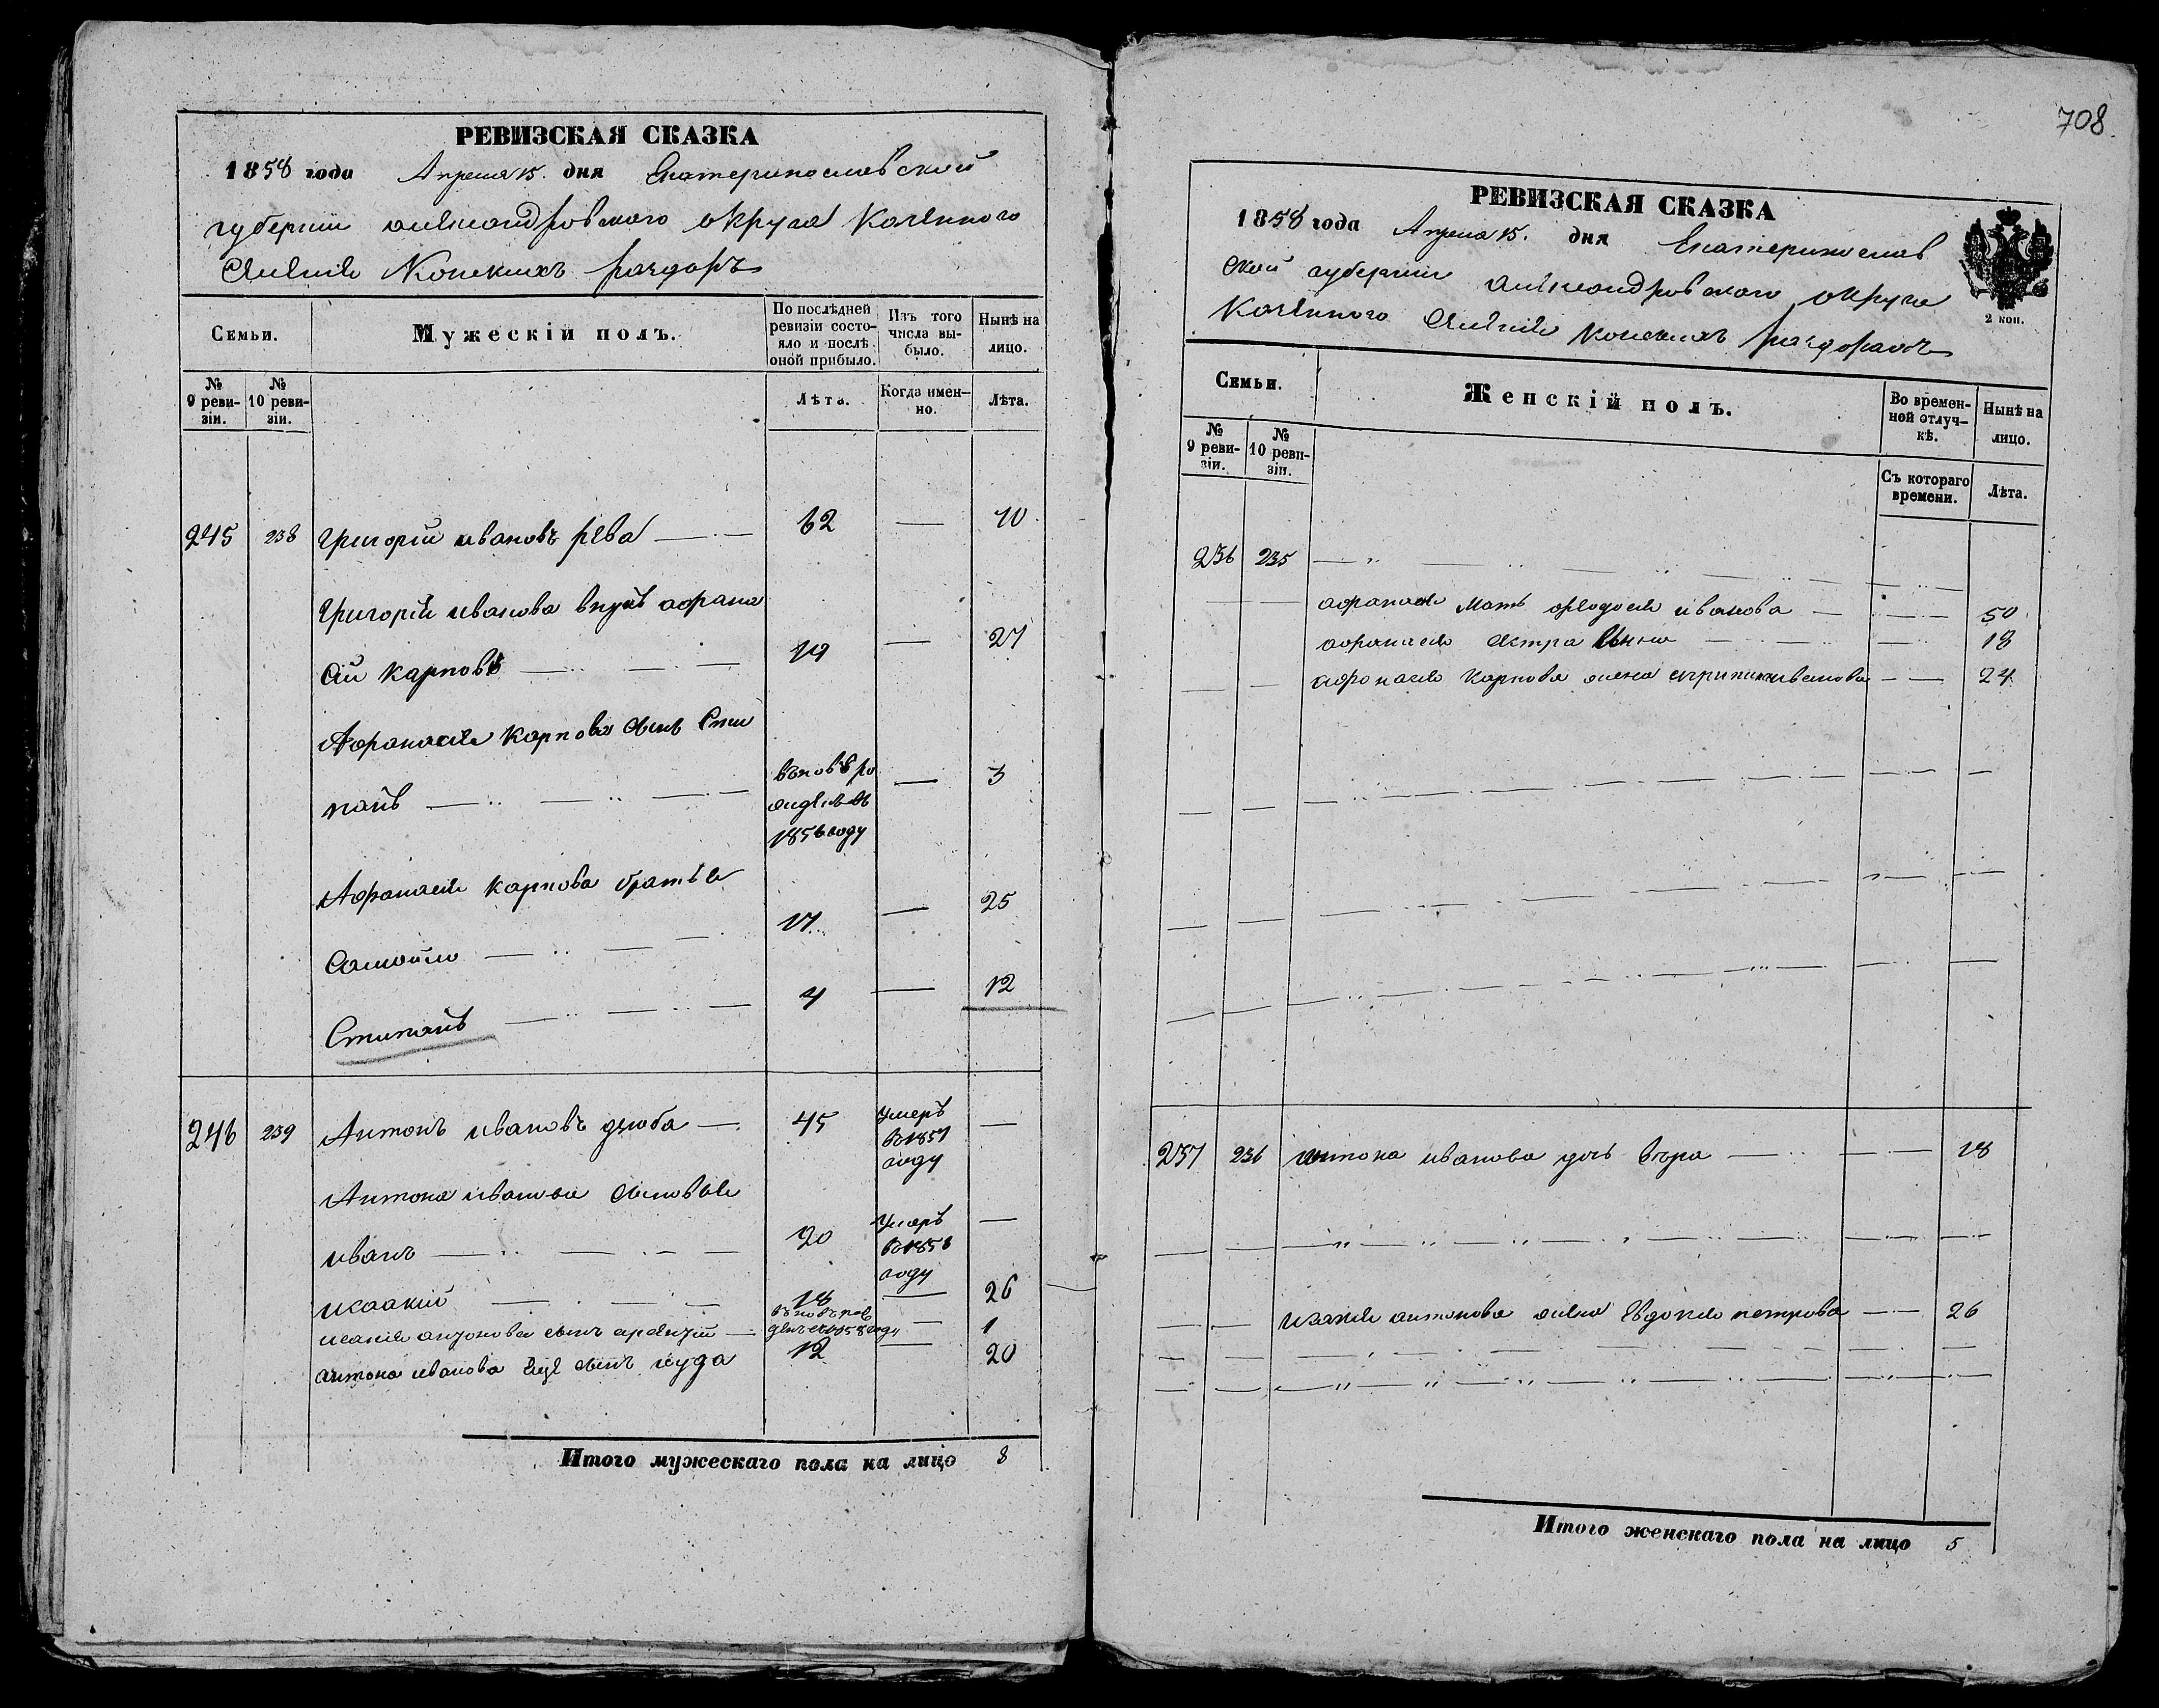 РЕВИЗСКАЯ СКАЗКА
1858 года Апреля 15. дня Екатеринославской
губернии александровского округа Казенного
Селенія Конскихъ раздоръ
Семьи.
Мужескій полъ.
По послѣдней ревизіи состо-
яло и послѣ оной прибыло.
Изъ того числа вы-
было.
Нынѣ на лицо.
№ 9 реви-
зіи.
№ 10 реви-
зіи.
Лѣта.
Когда имен-
но.
Лѣта.
245 238 Григорій ивановъ рева 62 — 70
Григорія иванова внукъ афана
сій карповъ 19 — 27
Афанасия карпова сынъ Сти
панъ вновь ро — 3
жденъ въ
1856 году
Афанасия карпова братья
Самойло 17 — 25
Стипанъ 4 — 12
246 239 Антонъ ивановъ дзюба 45 умеръ —
в 1857
году
Антона иванова сыновья
иванъ 20 умеръ —
в 1858
году
исаакий 18 — 26
исакия антонова сынъ — 1
антона иванова еще сынъ иуда 12 — 20
Итого мужескаго пола на лицо 8
708
РЕВИЗСКАЯ СКАЗКА
1858 года Апреля 15. дня Екатеринослав
ской губернии александровского округа
Казенного Селения Конскихъ раздорахъ
2 коп.
Семьи.
Женскій полъ.
Во времен-
ной отлуч-
кѣ.
Нынѣ на
лицо.
№ 9 реви-
зіи.
№ 10 реви-
зіи.
Съ котораго
времени.
Лѣта.
236 235
афанасия мать феодосия иванова 50
афанасия сестра 18
афанасия карпова жена иванова 24
237 236 антона иванова дочь вѣра 18
исакия антонова жена Евдокия петрова 26
Итого женскаго пола на лицо 5